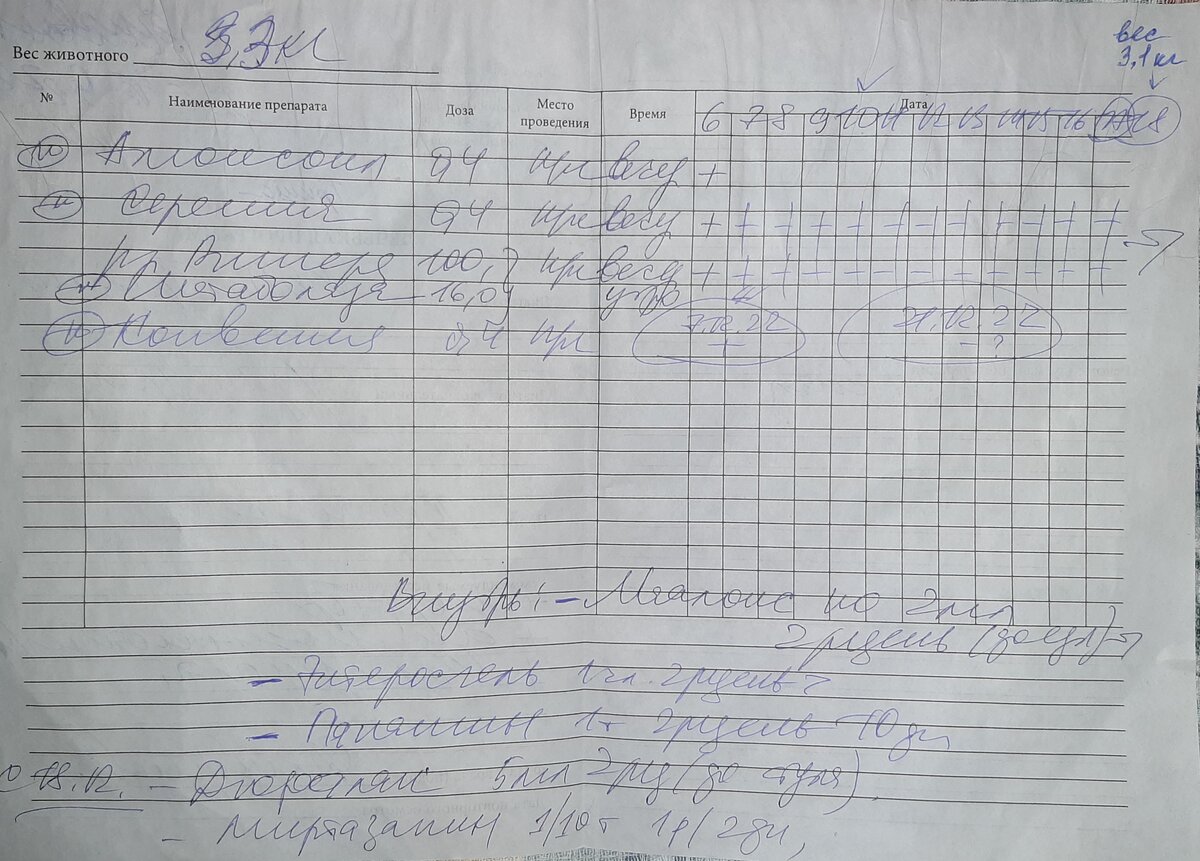 Вес животного 3,3 кг
вес
3,1 кг
№ Наименование препарата Доза Место проведения Время Дата
6 7 8 9 10 11 12 13 14 15 16 17 18
0,4 п/к весу +
Серения 0,4 п/к весу + + + + + + + + + + + +
р-р Рингера 100,0 п/к весу + + + + + + + + + + + +
16,0 утро
Конвения 0,4 п/к 7.12.22 + 21.12.22 - ?
Внутрь: - Мялакс по 2мл
2 р/день (до еды) →
- Энтеросгель 1 ч.л. 2 р/день
- 1т 2 р/день 10 дн
18.12. - Дюфалак 5мл 2 р/д (до стула),
- Миртазапин 1/10 т 1 р/2 дн,